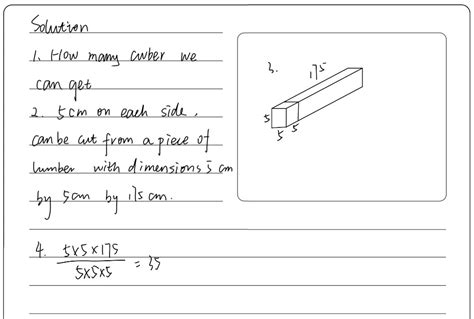 Solution
1. How many cuber we
can get
2. 5cm on each side,
can be cut from a piece of
lumber with dimensions 5 cm
by 5cm by 175 cm.
3.
175
5
5
5
4. 5x5x175
5x5x5
= 35